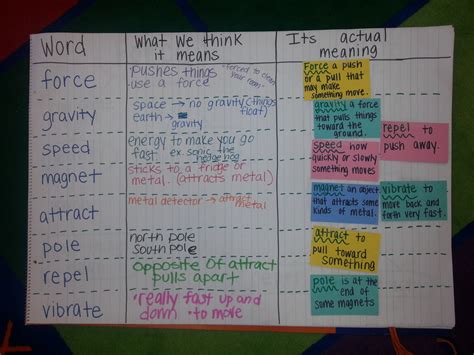 Word
What We think
it means
Its actual
meaning
force
• pushes things
• use a force
• forced to clean
your room!
Force a push
or a pull that
may make
something move.
gravity
space → no gravity (things
float)
earth → gravity
gravity a force
that pulls things
toward the
ground.
repel to
push away.
speed
energy to make you go
fast ex. sonic the
hedgehog
speed how
quickly or slowly
something moves
magnet
sticks to a fridge or
metal. (attracts metal)
magnet an object
that attracts some
kinds of metal.
vibrate to
move back and
forth very fast.
attract
metal detector → attract
metal
attract to
pull toward
something
pole
north pole
south pole
repel
opposite of attract
pulls apart
pole is at the
end of
some magnets
vibrate
• really fast up and
down • to move